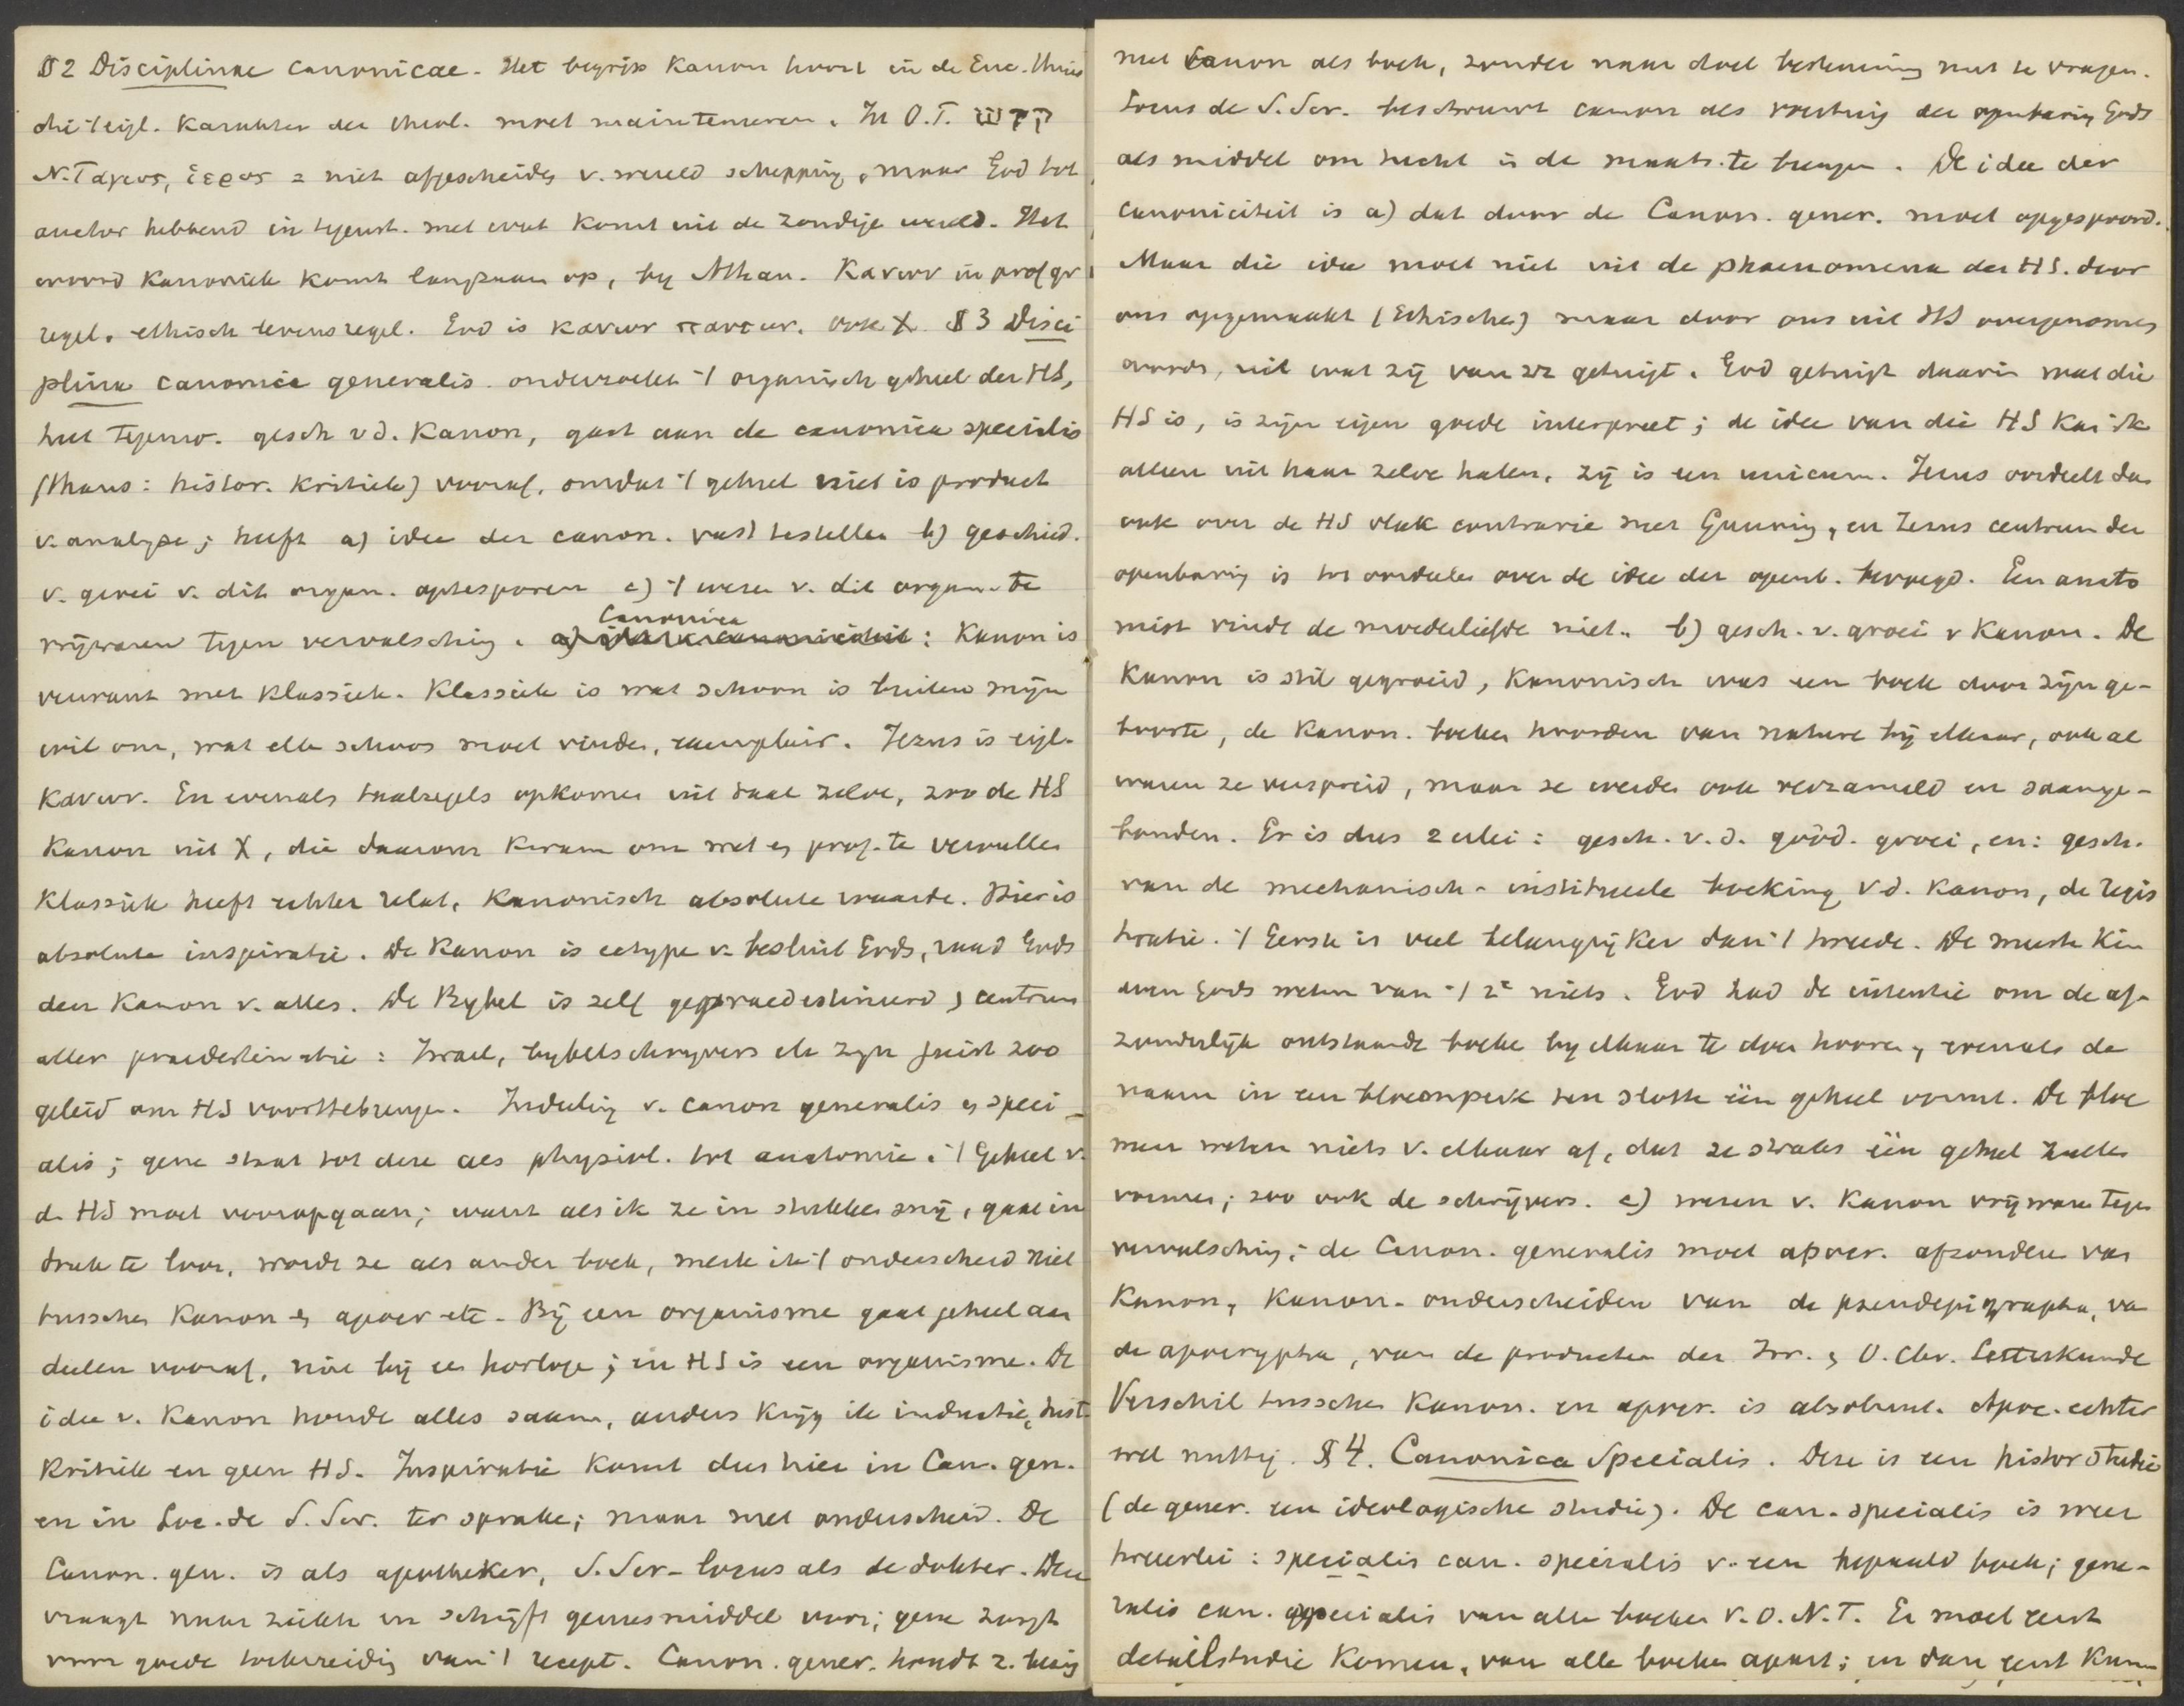 § 2 Disciplinae canonicae. Het begrip Kanon hoort in de Enc. thuis
die 't eig. karakter der theol. moet mainteneeren. In O.T. קדש
N.T ἁγιος, ἱερος = niet afgescheiden v. wereld schepping, maar God tot
auctor hebbend in tegenst. met wat komt uit de zondige wereld. Het
woord Kanoniek komt langzaam op, by Athan. Κανων in prof gr
regel, ethisch levensregel. God is κανων παντων. ook X. § 3 Disci
plina canonica generalis onderzoekt 't organisch geheel der HS,
het tegenw. gesch v d. Kanon, gaat aan de canonica specialis
(thans: histor. kritiek) vooraf, omdat 't geheel niet is product
v. analyse; heeft a) idee der canon. vast te stellen b) geschied.
v. groei v. dit organ. op te sporen c) 't wezen v. dit organ. te
vrijwaren tegen vervalsching. Canonica: Kanon is
verwant met klassiek. Klassiek is wat schoon is buiten mijn
wil om, wat elk schoon moet vinden, exemplair. Jezus is eigl.
Κανων. En evenals taalregels opkomen uit taal zelve, zoo de HS
Kanon uit X, die daarom kwam om wet en prof. te vervullen
Klassiek heeft echter relat, Kanonisch absolute waarde. Hier is
absolute inspiratie. De Kanon is ectype v. besluit Gods, raad Gods
den Kanon v. alles. De Bybel is zelf gepraedestineerd, centrum
aller praedestinatie: Israel, bybelschryvers etc zyn juist zoo
geleid om HS voorttebrengen. Indeeling v. canon generalis en speci-
alis; gene staat tot deze als physiol. tot anatomie. 't Geheel v.
d. HS moet vooropgaan; want als ik ze in stukken snij, gaat in
druk te loor, wordt ze als ander boek, merk ik 't onderscheid niet
tusschen Kanon en apocr etc. Bij een organisme gaat geheel aan
deelen vooraf, niet bij een horloge; en HS is een organisme. De
idee v. Kanon houdt alles saam, anders krijg ik inductie, hist.
Kritiek en geen HS. Inspiratie komt dus hier in Can. gen.
en in Loc. de S. Scr. ter sprake; maar met onderscheid. De
Canon. gen. is als apotheker, S. Scr-locus als de dokter. Deze
vraagt naar ziekte en schrijft geneesmiddel voor; gene zorgt
voor goede toebereiding van 't recept. Canon. gener. houdt z. bezig
met Canon als boek, zonder naar doel bestemming met te vragen.
Locus de S. Scr. beschouwt canon als voertuig der openbaring Gods
als middel om hecht in de maats. te brengen. De idee der
canoniciteit is a) dat door de Canon. gener. moet opgespoord.
Maar die idee moet niet uit de phaenomena der HS. door
ons opgemaakt (Ethischen) maar door ons uit HS overgenomen
worden, uit wat zij van zz getuigt. God getuigt daarin wat die
HS is, is zijn eigen goede interpreet; de idee van die HS kan ik
alleen uit haar zelve halen, zij is een unicum. Jezus oordeelt dan
ook over de HS vlak contrarie met Gunning, en Jezus centrum der
openbaring is tot oordeelen over de idee der openb. bevoegd. Een anato
mist vindt de moederliefde niet. b) gesch. v. groei v Kanon. De
Kanon is stil gegroeid, Kanonisch was een boek door zijn ge-
boorte, de Kanon. boeken hoorden van nature bij elkaar, ook al
waren ze verspreid, maar ze werden ook verzameld en saamge-
bonden. Er is dus 2 erlei: gesch. v. d. godd. groei, en: gesch.
van de mechanisch-institueele boeking v d. Kanon, de regis
tratie. 't Eerste is veel belangrijker dan 't tweede. De meeste kin
deren Gods weten van 't 2e niets. God had de intentie om de af-
zonderlijk ontstaande boeken by elkaar te doen hooren, evenals de
naam in een bloemperk ten slotte één geheel vormt. De bloe
men weten niets v. elkaar af, dat ze straks één geheel zullen
vormen; zoo ook de schrijvers. c) wezen v. Kanon vrijwaren tegen
vervalsching; de Canon. generalis moet apocr. afzonderen van
Kanon, Kanon. onderscheiden van de pseudepigrapha, van
de apocrypha, van de producten der Isr. en O. Chr. Letterkunde
Verschil tusschen Kanon. en apocr. is absoluut. Apoc. echter
wel nuttig. § 4. Canonica Specialis. Deze is een histor studie
(de gener. een ideologische studie). De can. specialis is weer
tweeerlei: specialis can. specialis v. een bepaald boek; gene-
ralis can. specialis van alle boeken v. O. N. T. Er moet eerst
detailstudie komen, van alle boeken apart; en dan eerst kan